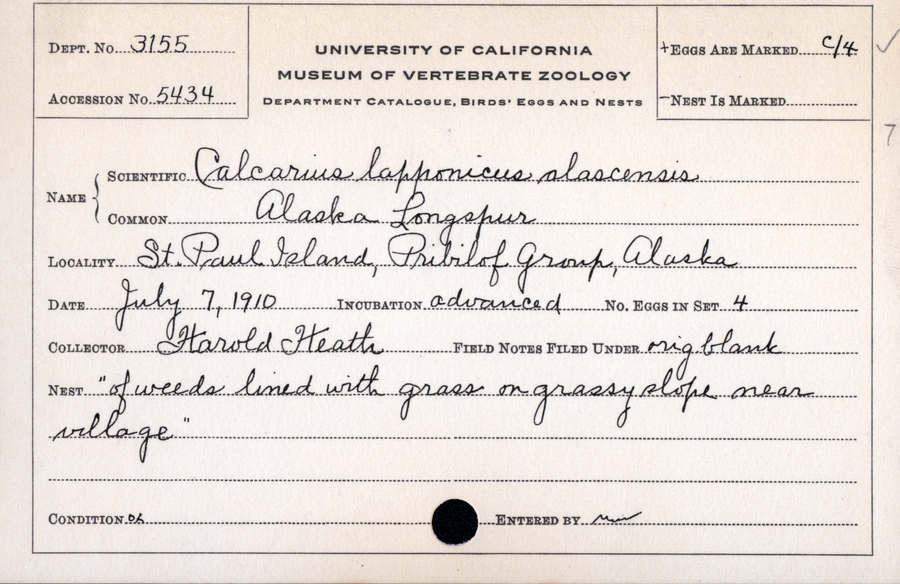 DEPT. NO. 3155
ACCESSION NO. 5434
UNIVERSITY OF CALIFORNIA
MUSEUM OF VERTEBRATE ZOOLOGY
DEPARTMENT CATALOGUE, BIRDS' EGGS AND NESTS
+EGGS ARE MARKED C/4 ✓
-NEST IS MARKED
7
NAME { SCIENTIFIC Calcarius lapponicus alascensis
COMMON Alaska Longspur
LOCALITY St. Paul Island, Pribilof Group, Alaska
DATE July 7, 1910 INCUBATION advanced NO. EGGS IN SET 4
COLLECTOR Harold Heath FIELD NOTES FILED UNDER orig blank
NEST "of weeds lined with grass on grassy slope near
village"
CONDITION ok ENTERED BY